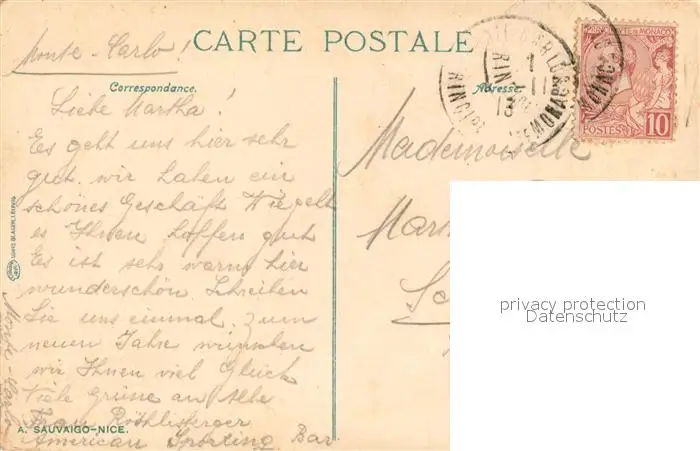 Monte-Carlo!
CARTE POSTALE
Correspondance.
Adresse.
PRINCIPAUTÉ DE MONACO
POSTES 10
Liebe Martha!
Es geht uns hier sehr
gut. wir haben ein
schönes Geschäft Wie geht
es Ihnen hoffen gut
Es ist sehr warm hier
wunderschön. Schreiben
Sie uns einmal. Zum
neuen Jahre wünschen
wir Ihnen viel Glück
Viele Grüsse an alle
Frau Röthlisberger
American Sporting Bar
Monte-Carlo
A. SAUVAIGO-NICE.
Mademoiselle
Mar
Sc
privacy protection
Datenschutz